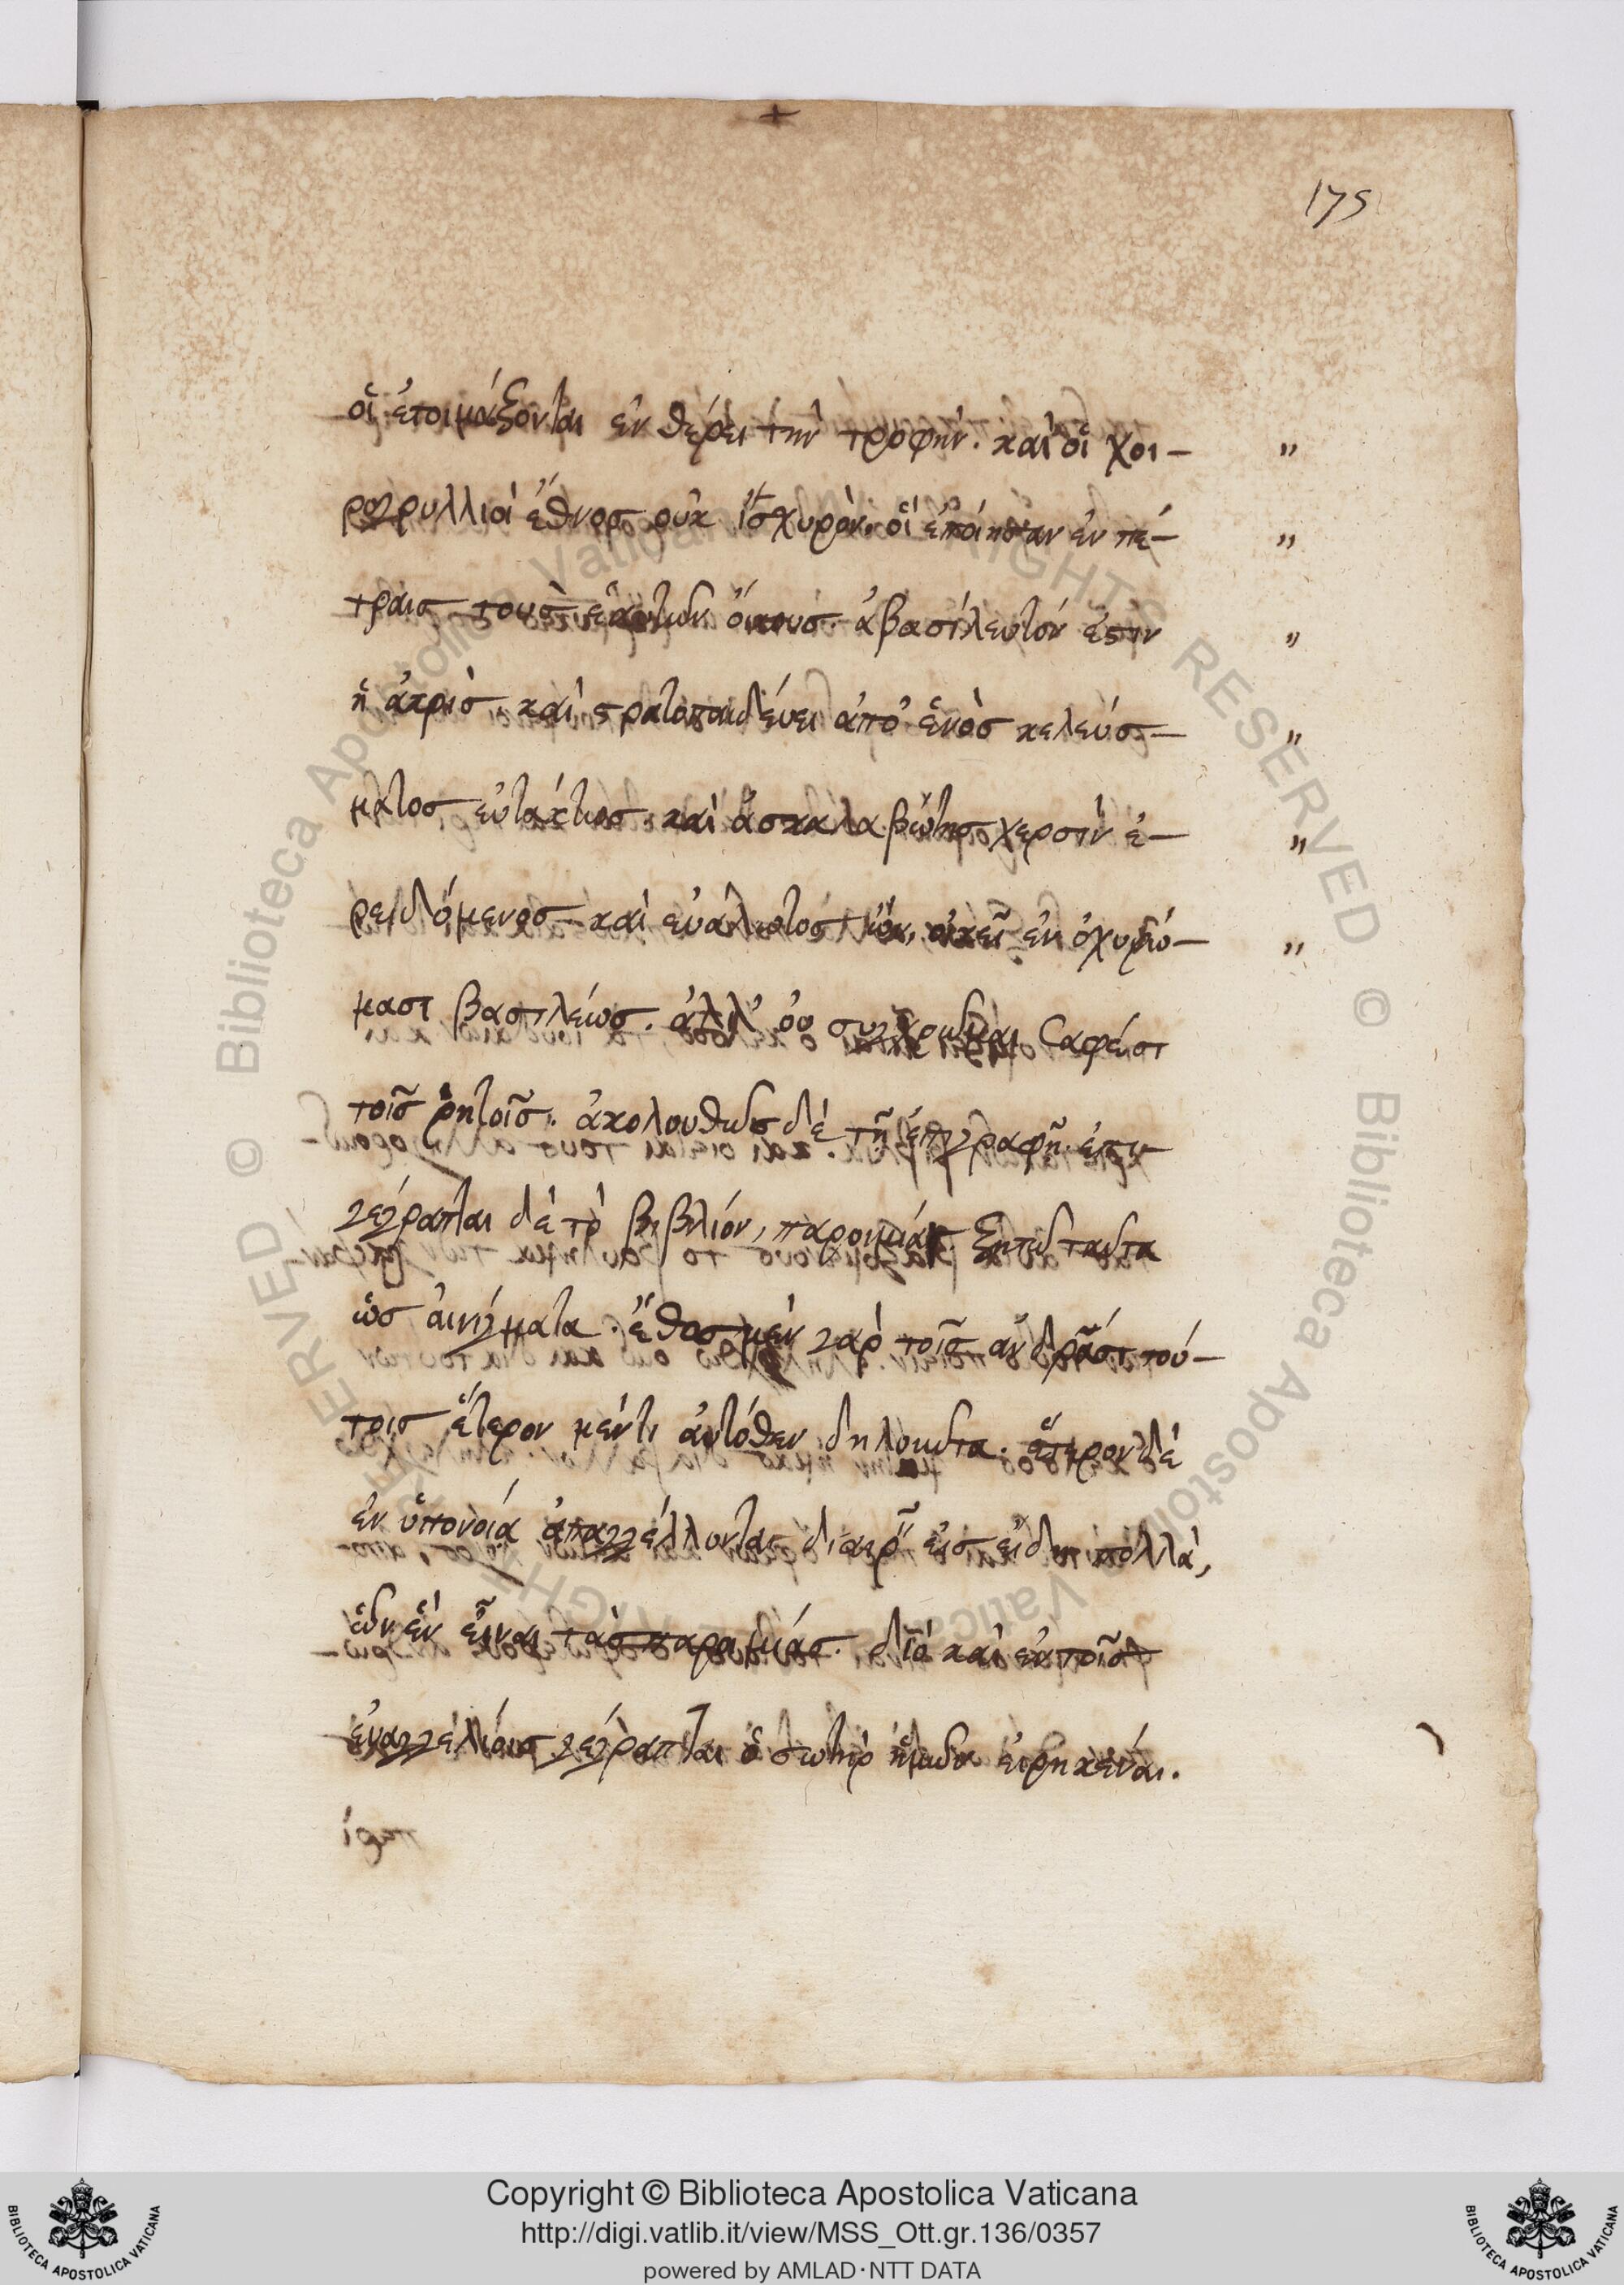 175
οἳ ἑτοιμάζονται ἐν θέρει τὴν τροφήν. καὶ οἱ χοι- "
ρογρυλλιοὶ ἔθνος οὐκ ἰσχυρὸν. οἳ ἐποίησαν ἐν πέ- "
τραισ τοὺσ ἑαυτῶν οἴκουσ. ἀβασίλευτόν ἐστιν "
ἡ ἀκρὶσ. καὶ στρατοπεδεύει ἀπὸ ἑνὸσ κελεύσ- "
ματοσ εὐτάκτωσ. καὶ ἀσκαλαβώτησ χερσὶν ἐ- "
ρειδόμενοσ καὶ εὐάλωτοσ ὢν, οἰκεῖ ἐν ὀχυρώ- "
μασι βασιλέωσ. ἀλλ' οὐ συγχρῶμαι σαφέσι
τοῖσ ῥητοῖσ. ἀκολούθωσ δὲ τῆ ἐπιγραφῆ. ἐπι-
γέγραπται δὲ τὸ βιβλίον, παροιμίαι. ζητῶ ταῦτα
ὡσ αἰνίγματα. ἔθοσ μὲν γὰρ τοῖσ ἀνδράσι τού-
τοισ ἕτερον μέν τι αὐτόθεν δηλοῦντα. ἕτερον δὲ
ἐν ὑπονοίᾳ ἀπαγγέλλοντα διαιρεῖν εἰσ εἴδη πολλά,
ὧν ἓν εἶναι τὰσ παροιμίασ. διὸ καὶ ἐν τοῖσ
εὐαγγελίοισ γέγραπται ὁ σωτὴρ ἡμῶν εἰρηκέναι.
Copyright © Biblioteca Apostolica Vaticana
http://digi.vatlib.it/view/MSS_Ott.gr.136/0357
powered by AMLAD·NTT DATA
BIBLIOTECA APOSTOLICA VATICANA
BIBLIOTECA APOSTOLICA VATICANA